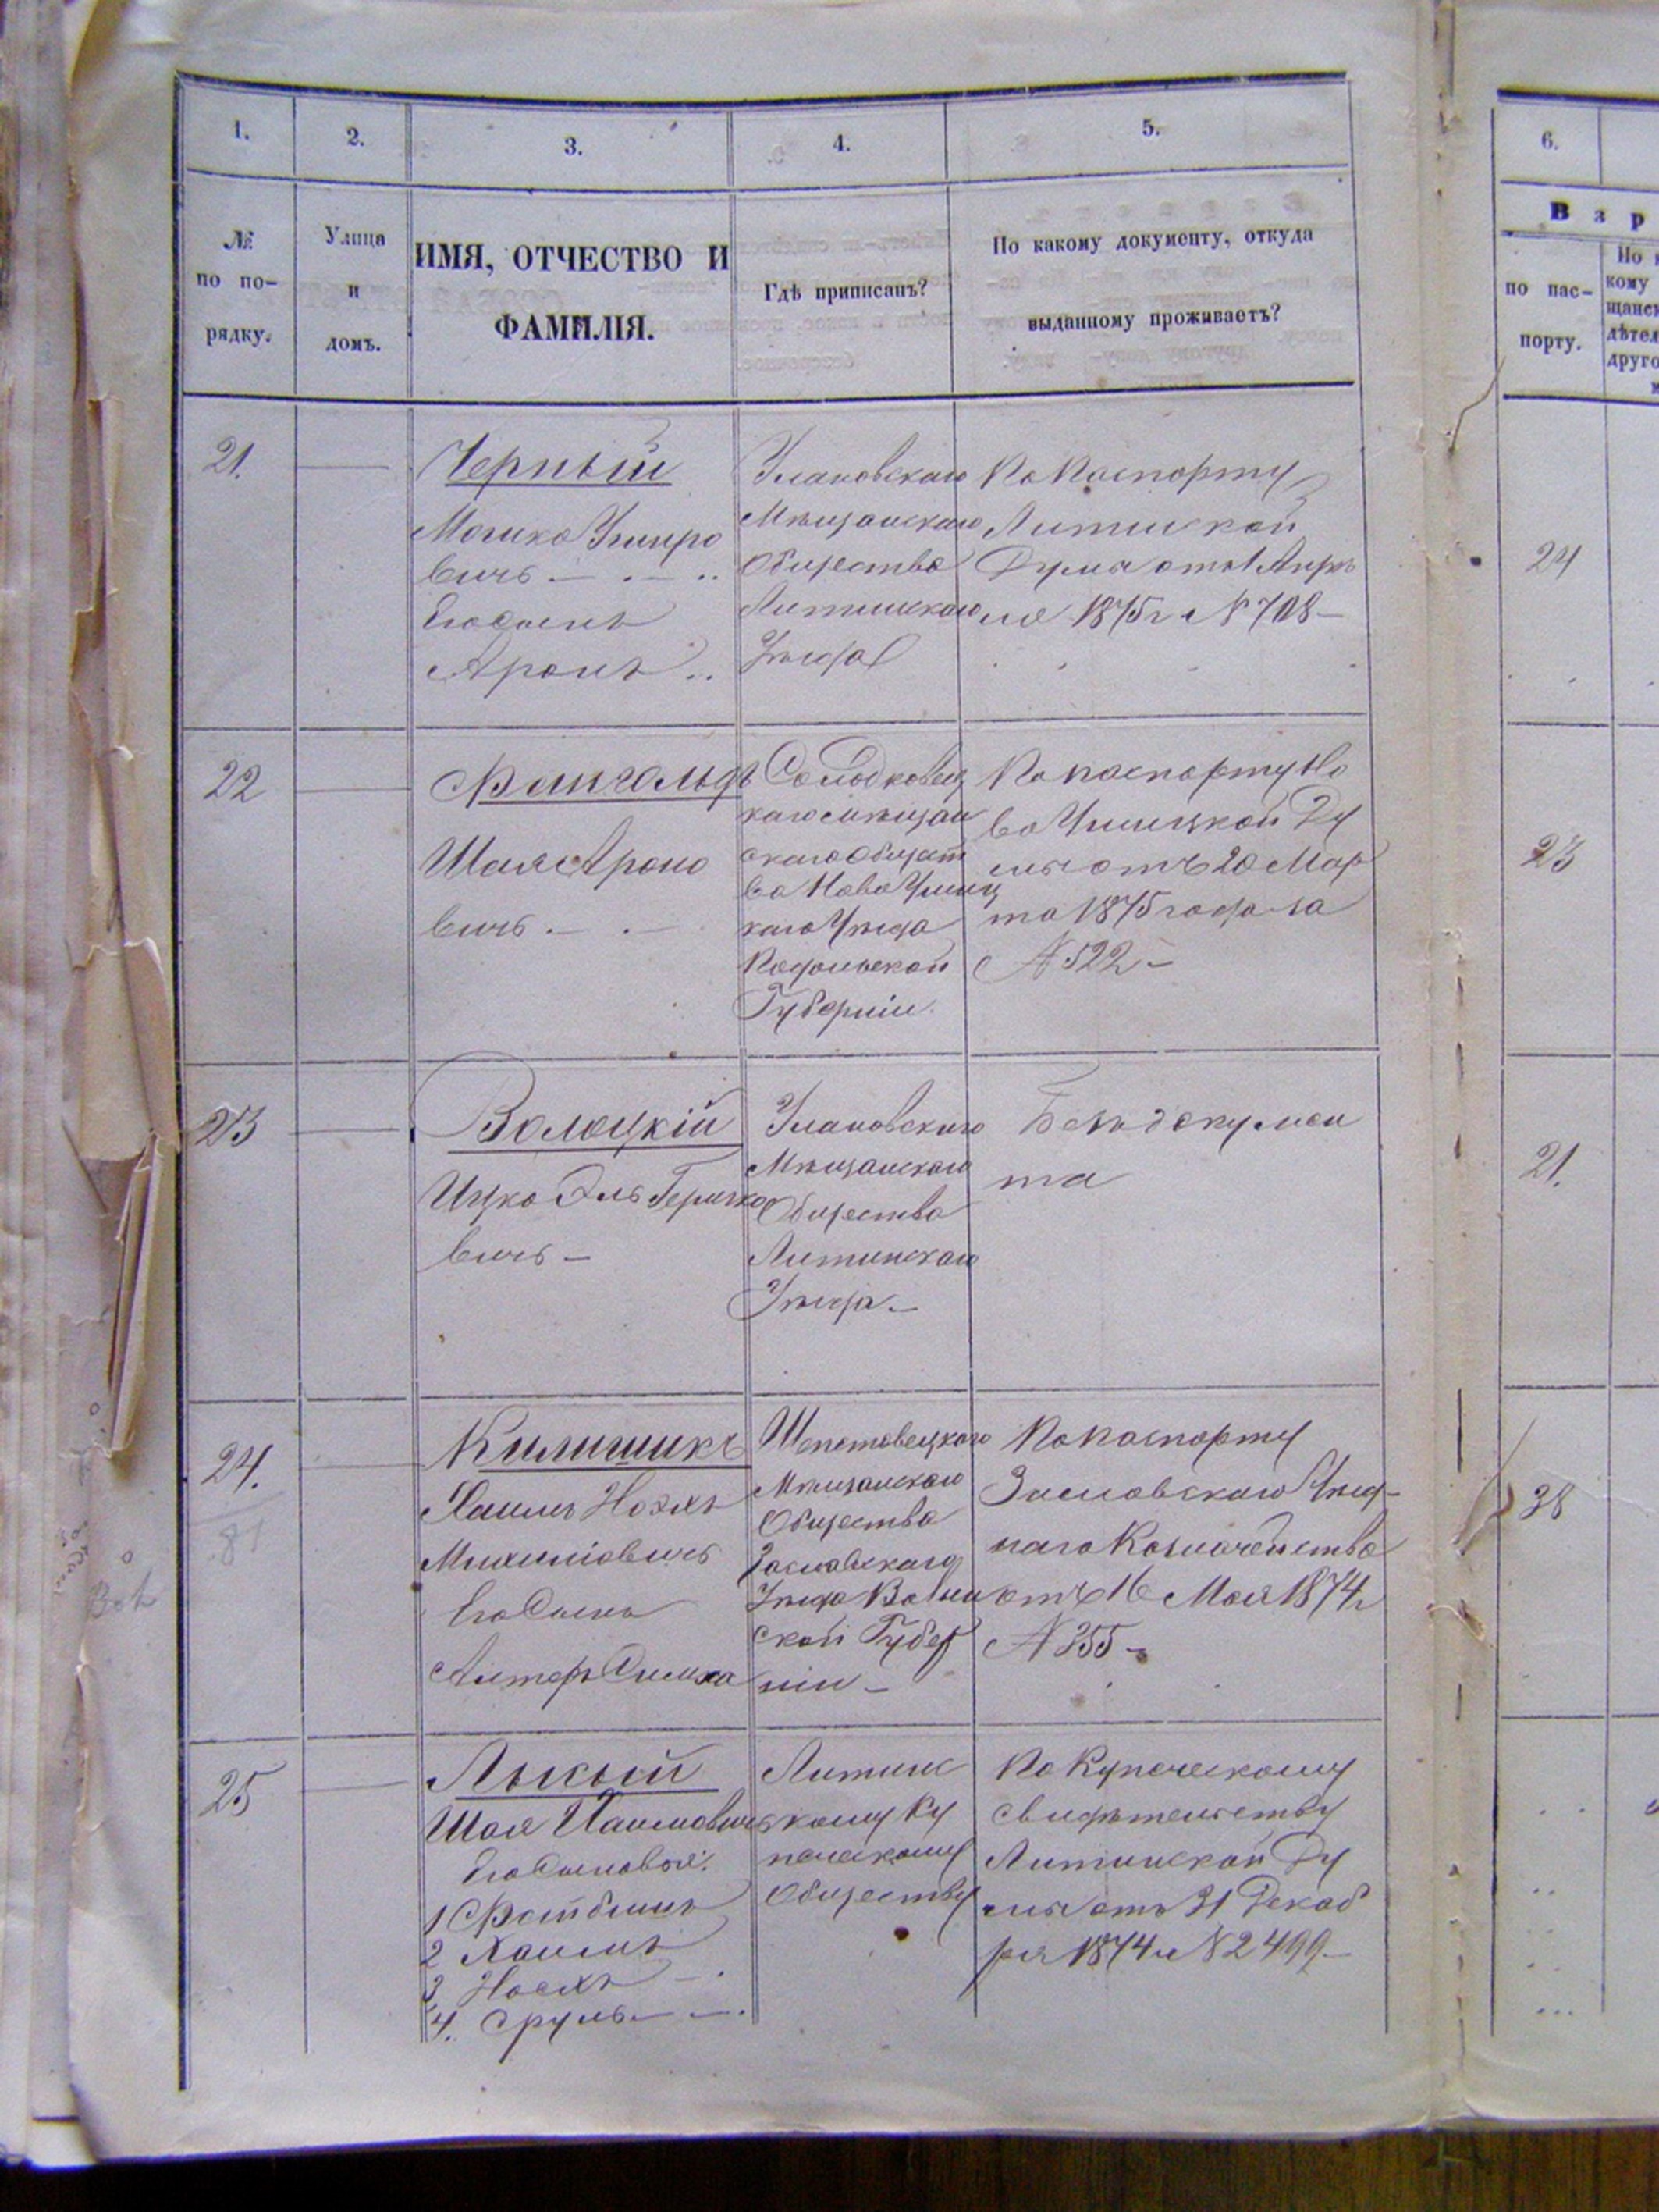 1.
2.
3.
4.
5.
№
по по-
рядку.
Улица
и
домъ.
ИМЯ, ОТЧЕСТВО И
ФАМИЛІЯ.
Гдѣ приписанъ?
По какому документу, откуда
выданному проживаетъ?
21.
Черный
Мошко Умиро
вичъ
Его сынъ
Аронъ
Улановскаго
Мѣщанскаго
Общества
Литинскаго
Уѣзда
По паспорту
Литинской
Думы отъ 1 Апрѣ
ля 1875 г. № 708
22
Шая Ароно
вичъ
Солодковец
каго мѣщан
скаго общест
ва Ново Ушиц
каго Уѣзда
Подольской
Губерніи
По паспорту Но
во Ушицкой Ду
мы отъ 20 Мар
та 1875 года за
№ 522
23
Волоцкій
Ицко Эль Гершко
вичъ
Улановскаго
Мѣщанскаго
Общества
Литинскаго
Уѣзда
Безъ докумен
та
24.
81
Килимникъ
Хаимъ Нохъ
Михиліовичъ
Его Сынъ
Алтеръ Симха
Шепетовецкаго
Мѣщанскаго
Общества
Заславскаго
Уѣзда Волын
ской Губер
ніи
По паспорту
Заславскаго Уѣзд
наго Казначейства
отъ 16 Мая 1874 г
№ 355
25
Лысый
Шая Хаимовичъ
Его Сыновья:
1 Фа
2 Хаимъ
3 Носхъ
4. Сруль
Литин
скому Ку
печескому
Обществу
По Купеческому
свидѣтельству
Литинской Ду
мы отъ 31 Декаб
ря 1874 г № 2499
6.
Взр
по пас-
порту.
По
кому
щанск
дѣтел
друго
24
23
21.
38